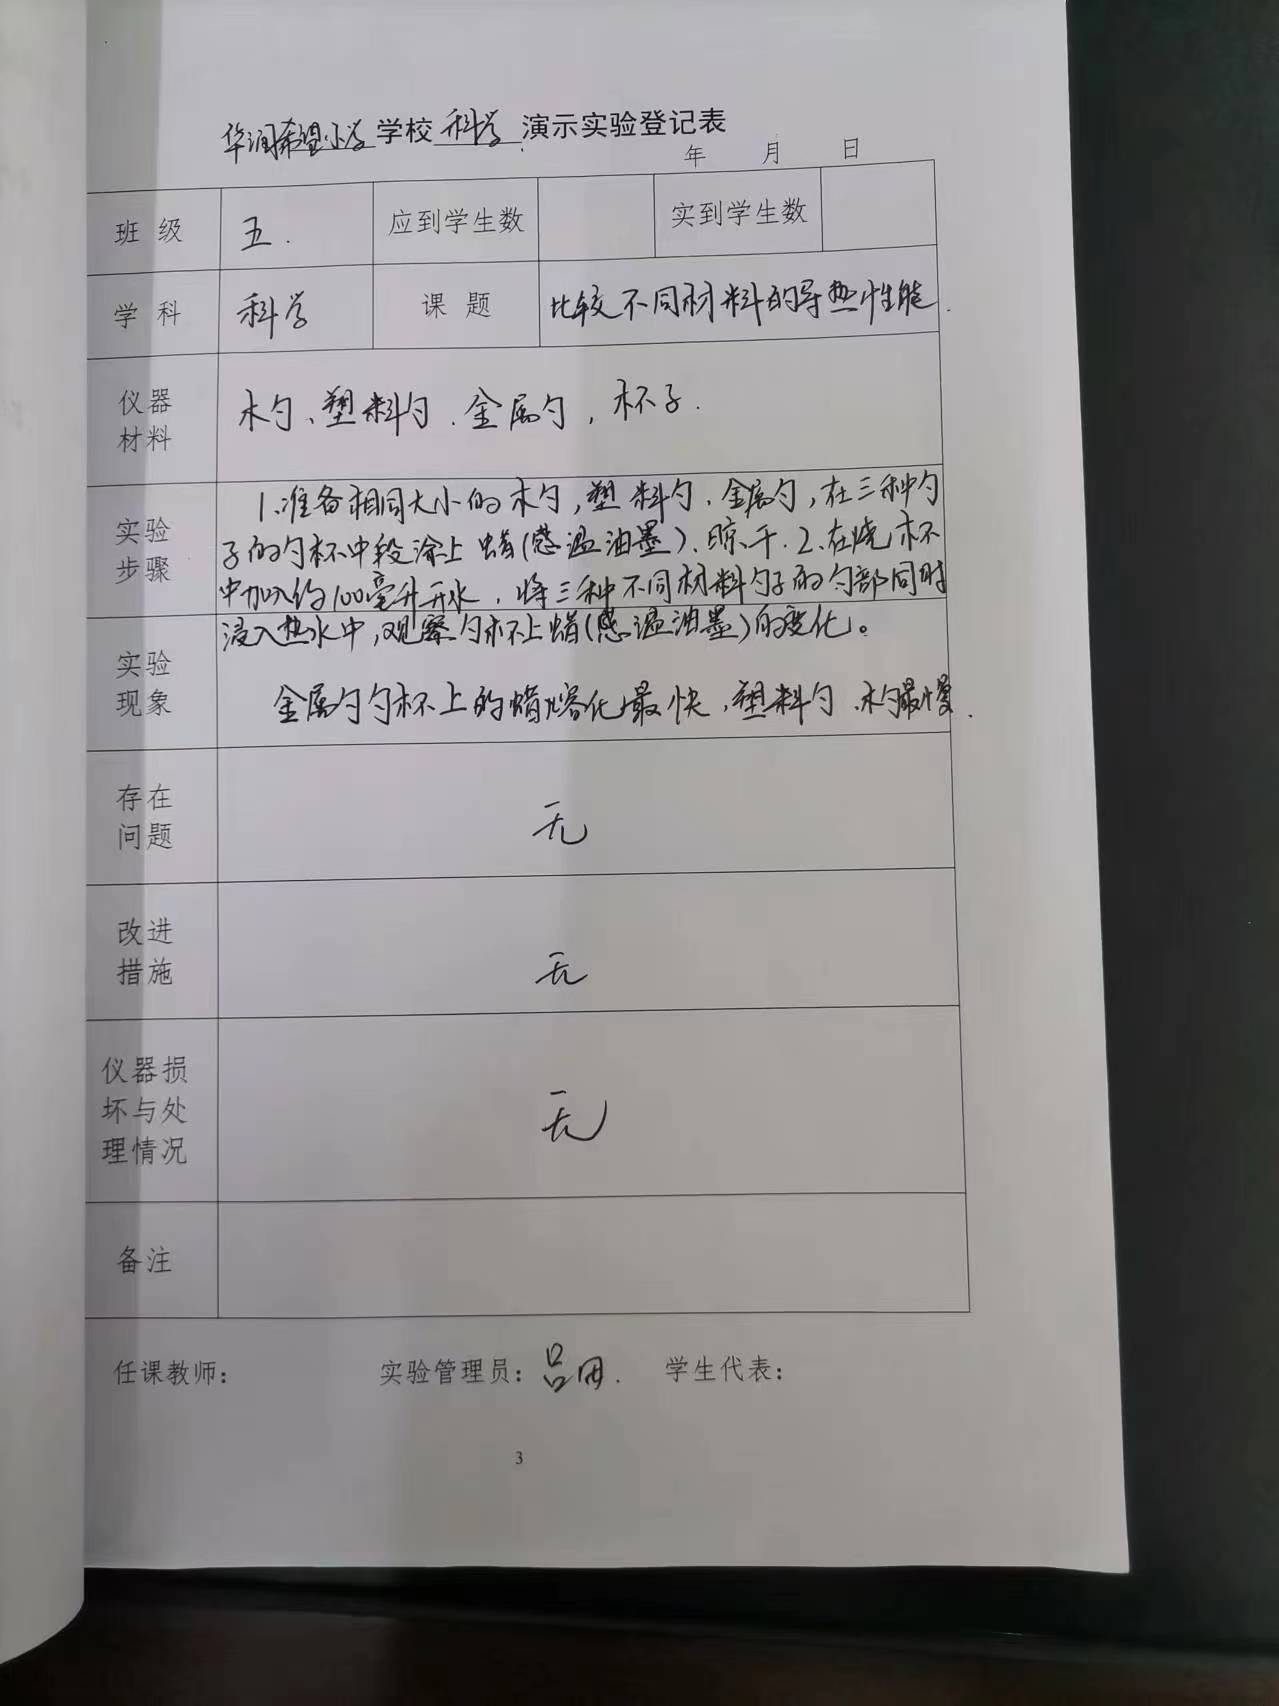 华润希望小学学校 科学 演示实验登记表
年 月 日
班 级 五. 应到学生数 实到学生数
学 科 科学 课 题 比较不同材料的导热性能.
仪器
材料
木勺、塑料勺、金属勺,杯子.
实验
步骤
1.准备相同大小的木勺,塑料勺、金属勺,在三种勺
子的勺杯中段涂上蜡(感温油墨)、晾干.2、在烧杯
中加入约100毫升开水,将三种不同材料勺子的勺部同时
浸入热水中,观察勺杯上蜡(感温油墨)的变化。
实验
现象
金属勺勺杯上的蜡熔化最快,塑料勺、木勺最慢.
存在
问题
无
改进
措施
无
仪器损
坏与处
理情况
无
备注
任课教师: 实验管理员:吕 学生代表:
3